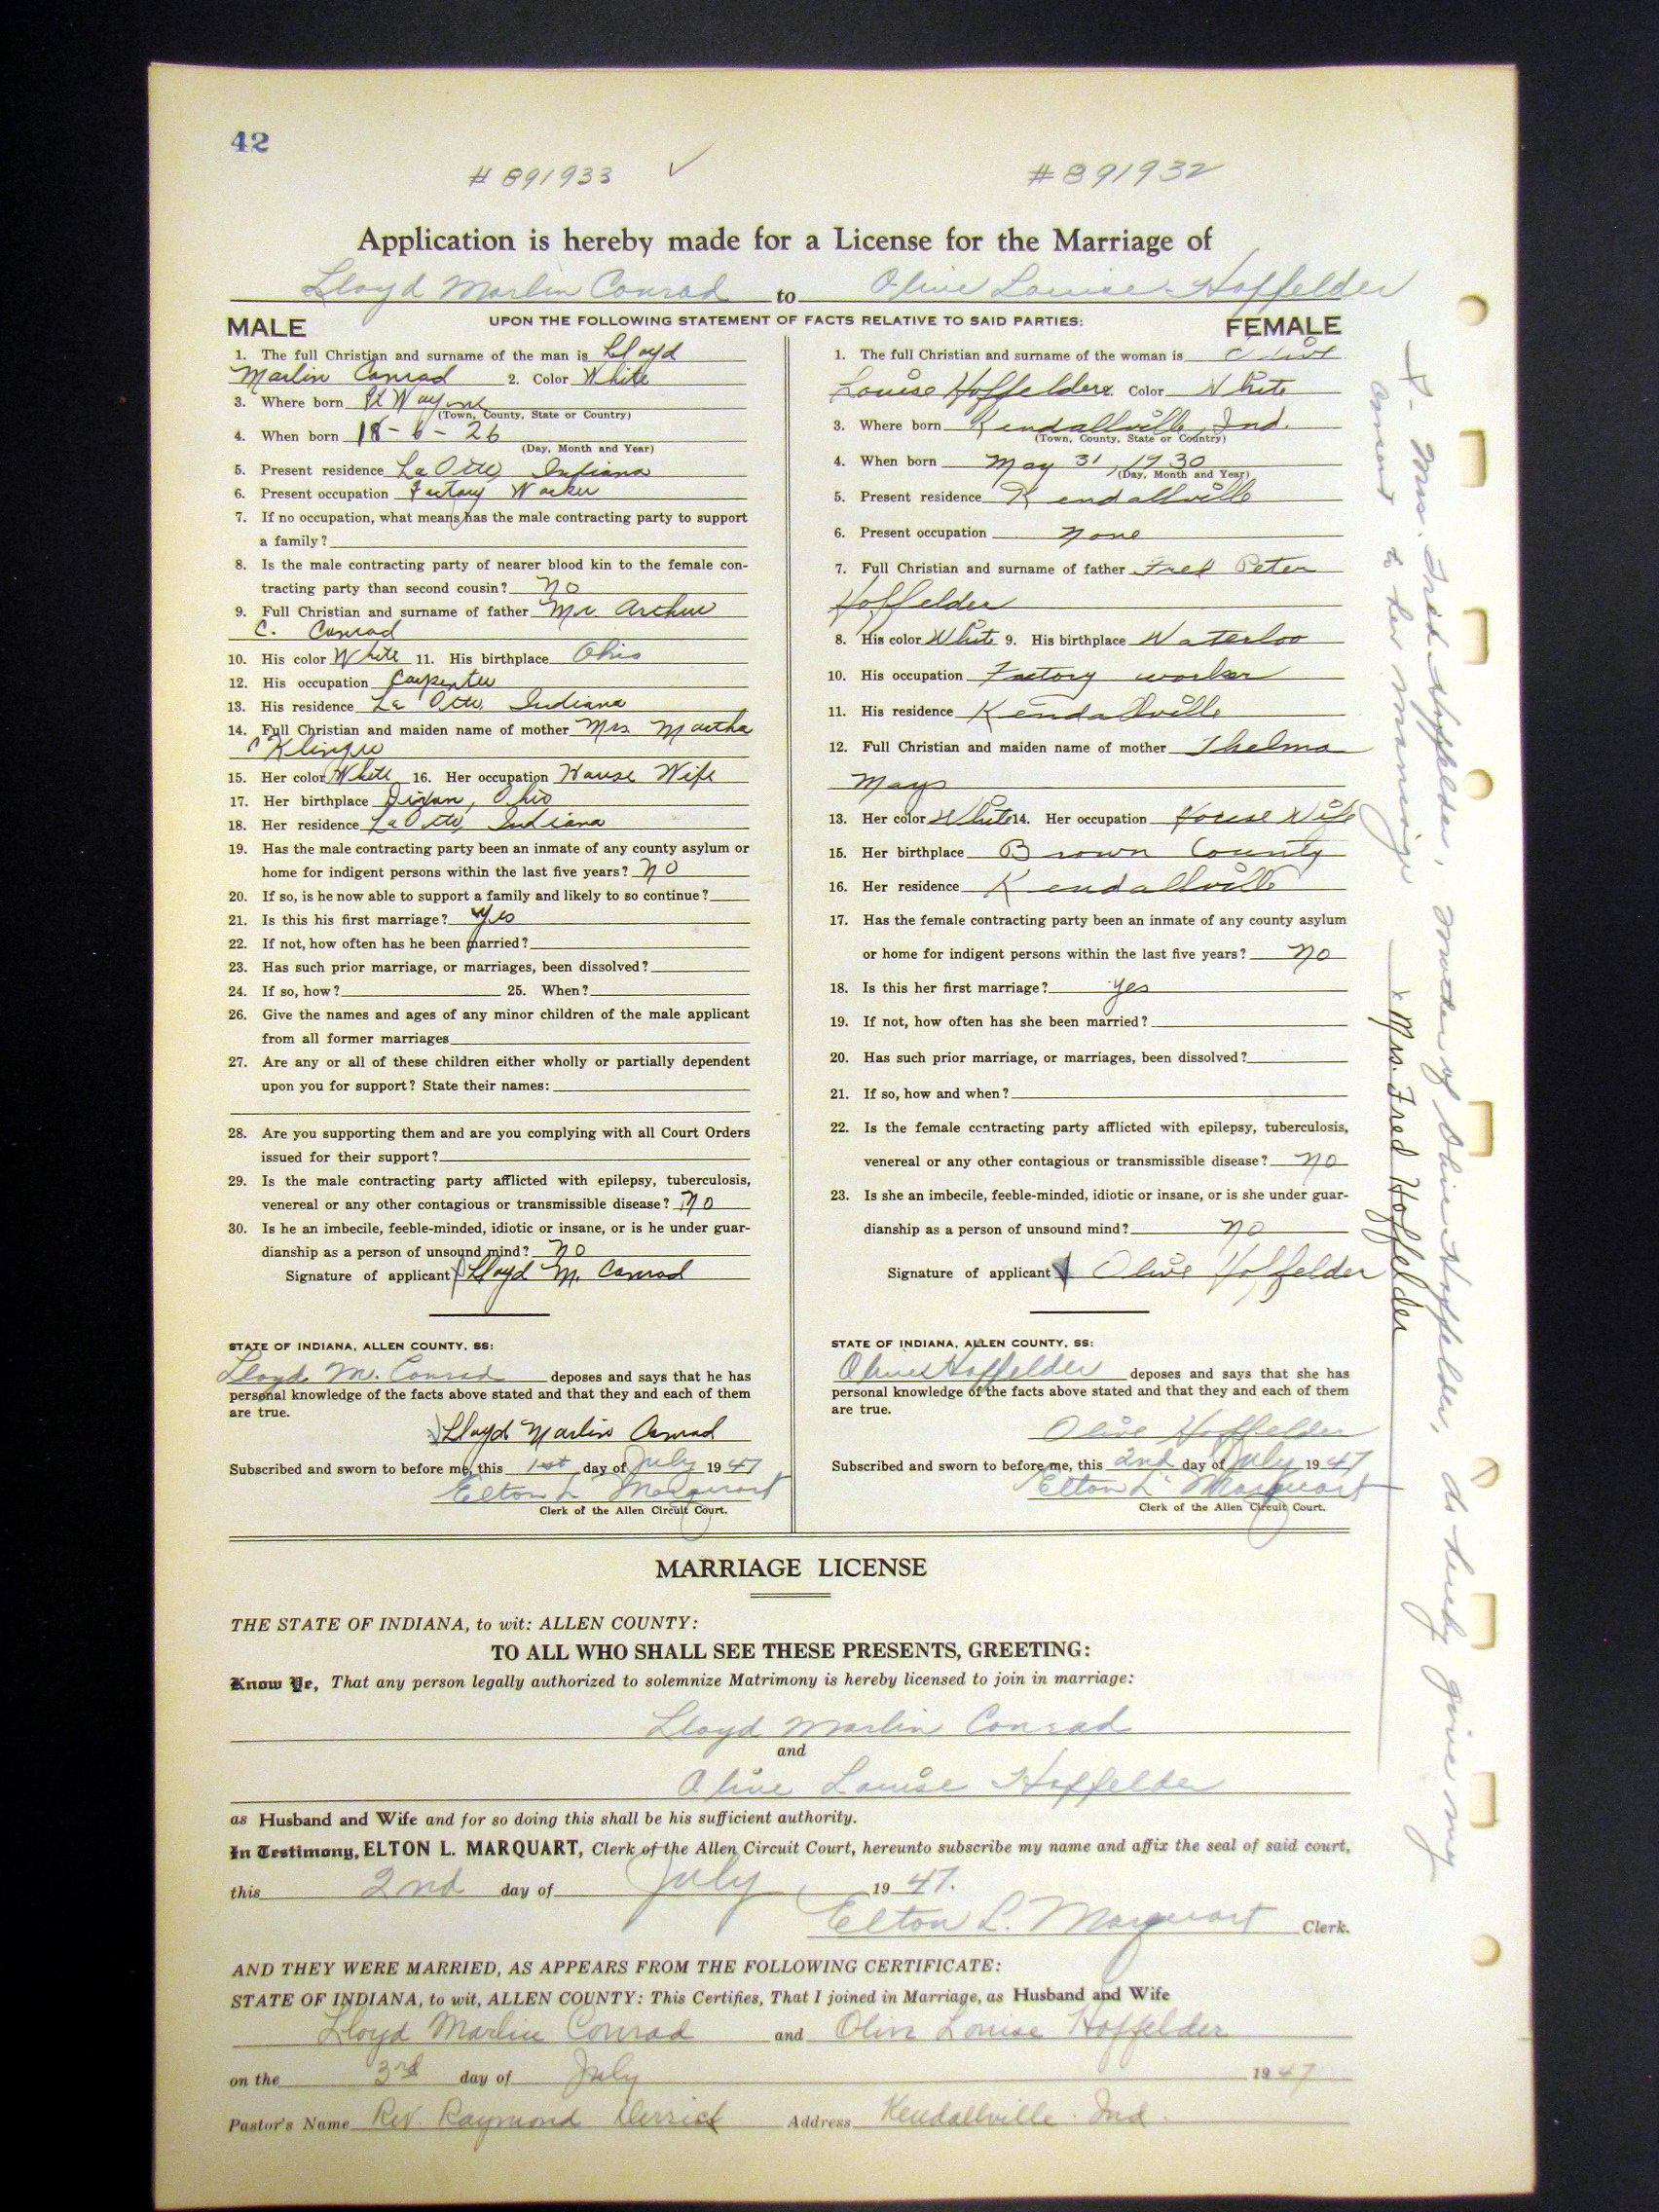 42
# 891933 ✓ # 891932
Application is hereby made for a License for the Marriage of
Lloyd Marlin Conrad to Olive Louise Hoffelder
UPON THE FOLLOWING STATEMENT OF FACTS RELATIVE TO SAID PARTIES:
MALE
1. The full Christian and surname of the man is Lloyd
Marlin Conrad 2. Color White
3. Where born Ft Wayne
(Town, County, State or Country)
4. When born 18-6-26
(Day, Month and Year)
5. Present residence La Otto, Indiana
6. Present occupation Factory Worker
7. If no occupation, what means has the male contracting party to support
a family?
8. Is the male contracting party of nearer blood kin to the female con-
tracting party than second cousin? no
9. Full Christian and surname of father Mr. Arthur
C. Conrad
10. His color White 11. His birthplace Ohio
12. His occupation Carpenter
13. His residence La Otto, Indiana
14. Full Christian and maiden name of mother Mrs. Martha
Klinger
15. Her color White 16. Her occupation House Wife
17. Her birthplace Dixon, Ohio
18. Her residence La Otto, Indiana
19. Has the male contracting party been an inmate of any county asylum or
home for indigent persons within the last five years? no
20. If so, is he now able to support a family and likely to so continue?
21. Is this his first marriage? yes
22. If not, how often has he been married?
23. Has such prior marriage, or marriages, been dissolved?
24. If so, how? 25. When?
26. Give the names and ages of any minor children of the male applicant
from all former marriages
27. Are any or all of these children either wholly or partially dependent
upon you for support? State their names:
28. Are you supporting them and are you complying with all Court Orders
issued for their support?
29. Is the male contracting party afflicted with epilepsy, tuberculosis,
venereal or any other contagious or transmissible disease? no
30. Is he an imbecile, feeble-minded, idiotic or insane, or is he under guar-
dianship as a person of unsound mind? no
Signature of applicant Lloyd M. Conrad
STATE OF INDIANA, ALLEN COUNTY, SS:
Lloyd M. Conrad deposes and says that he has
personal knowledge of the facts above stated and that they and each of them
are true.
Lloyd Marlin Conrad
Subscribed and sworn to before me, this 1st day of July 1947
Elton L. Marquart
Clerk of the Allen Circuit Court.
FEMALE
1. The full Christian and surname of the woman is Olive
Louise Hoffelder 2. Color White
3. Where born Kendallville, Ind.
(Town, County, State or Country)
4. When born May 31, 1930
(Day, Month and Year)
5. Present residence Kendallville
6. Present occupation none
7. Full Christian and surname of father Fred Peter
Hoffelder
8. His color White 9. His birthplace Waterloo
10. His occupation Factory worker
11. His residence Kendallville
12. Full Christian and maiden name of mother Thelma
Mays
13. Her color White 14. Her occupation House Wife
15. Her birthplace Brown County
16. Her residence Kendallville
17. Has the female contracting party been an inmate of any county asylum
or home for indigent persons within the last five years? no
18. Is this her first marriage? yes
19. If not, how often has she been married?
20. Has such prior marriage, or marriages, been dissolved?
21. If so, how and when?
22. Is the female contracting party afflicted with epilepsy, tuberculosis,
venereal or any other contagious or transmissible disease? no
23. Is she an imbecile, feeble-minded, idiotic or insane, or is she under guar-
dianship as a person of unsound mind? no
Signature of applicant Olive Hoffelder
STATE OF INDIANA, ALLEN COUNTY, SS:
Olive Hoffelder deposes and says that she has
personal knowledge of the facts above stated and that they and each of them
are true.
Olive Hoffelder
Subscribed and sworn to before me, this 2nd day of July 1947
Elton L. Marquart
Clerk of the Allen Circuit Court.
X- Mrs. Fred Hoffelder, mother of Olive Hoffelder, do hereby give my
consent to her marriage
x Mrs. Fred Hoffelder
MARRIAGE LICENSE
THE STATE OF INDIANA, to wit: ALLEN COUNTY:
TO ALL WHO SHALL SEE THESE PRESENTS, GREETING:
Know Ye, That any person legally authorized to solemnize Matrimony is hereby licensed to join in marriage:
Lloyd Marlin Conrad
and
Olive Louise Hoffelder
as Husband and Wife and for so doing this shall be his sufficient authority.
In Testimony, ELTON L. MARQUART, Clerk of the Allen Circuit Court, hereunto subscribe my name and affix the seal of said court,
this 2nd day of July, 1947.
Elton L. Marquart Clerk.
AND THEY WERE MARRIED, AS APPEARS FROM THE FOLLOWING CERTIFICATE:
STATE OF INDIANA, to wit, ALLEN COUNTY: This Certifies, That I joined in Marriage, as Husband and Wife
Lloyd Marlin Conrad and Olive Louise Hoffelder
on the 3rd day of July 1947
Pastor's Name Rev. Raymond Derrick Address Kendallville Ind.